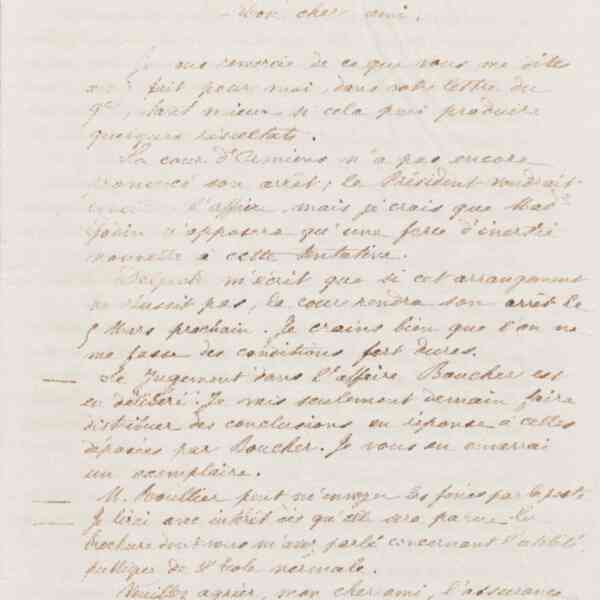 Mon cher ami.
Je me remercie de ce que vous me dites
fait pour moi, dans votre lettre du
9 ct, tant mieux si cela peut produire
quelques résultats.
La cour d'Amiens n'a pas encore
prononcé son arrêt; le Président voudrait
l'affaire, mais je crois que Mad.
n'opposera qu'une force d'inertie
nouvelle à cette tentative.
m'écrit que si cet arrangement
ne réussit pas, la cour rendra son arrêt le
5 Mars prochain. Je crains bien que l'on ne
me fasse des conditions fort dures.
Le Jugement dans l'affaire Boucher est
en délibéré. Je vais seulement demain faire
distribuer des conclusions en réponse à celles
déposées par Boucher. Je vous en enverrai
un exemplaire.
M. peut m'envoyer les par la poste
Je lirai avec intérêt dès qu'elle sera parue la
brochure dont vous m'avez parlé concernant l'utilité
publique de l'école normale.
Veuillez agréer, mon cher ami, l'assurance